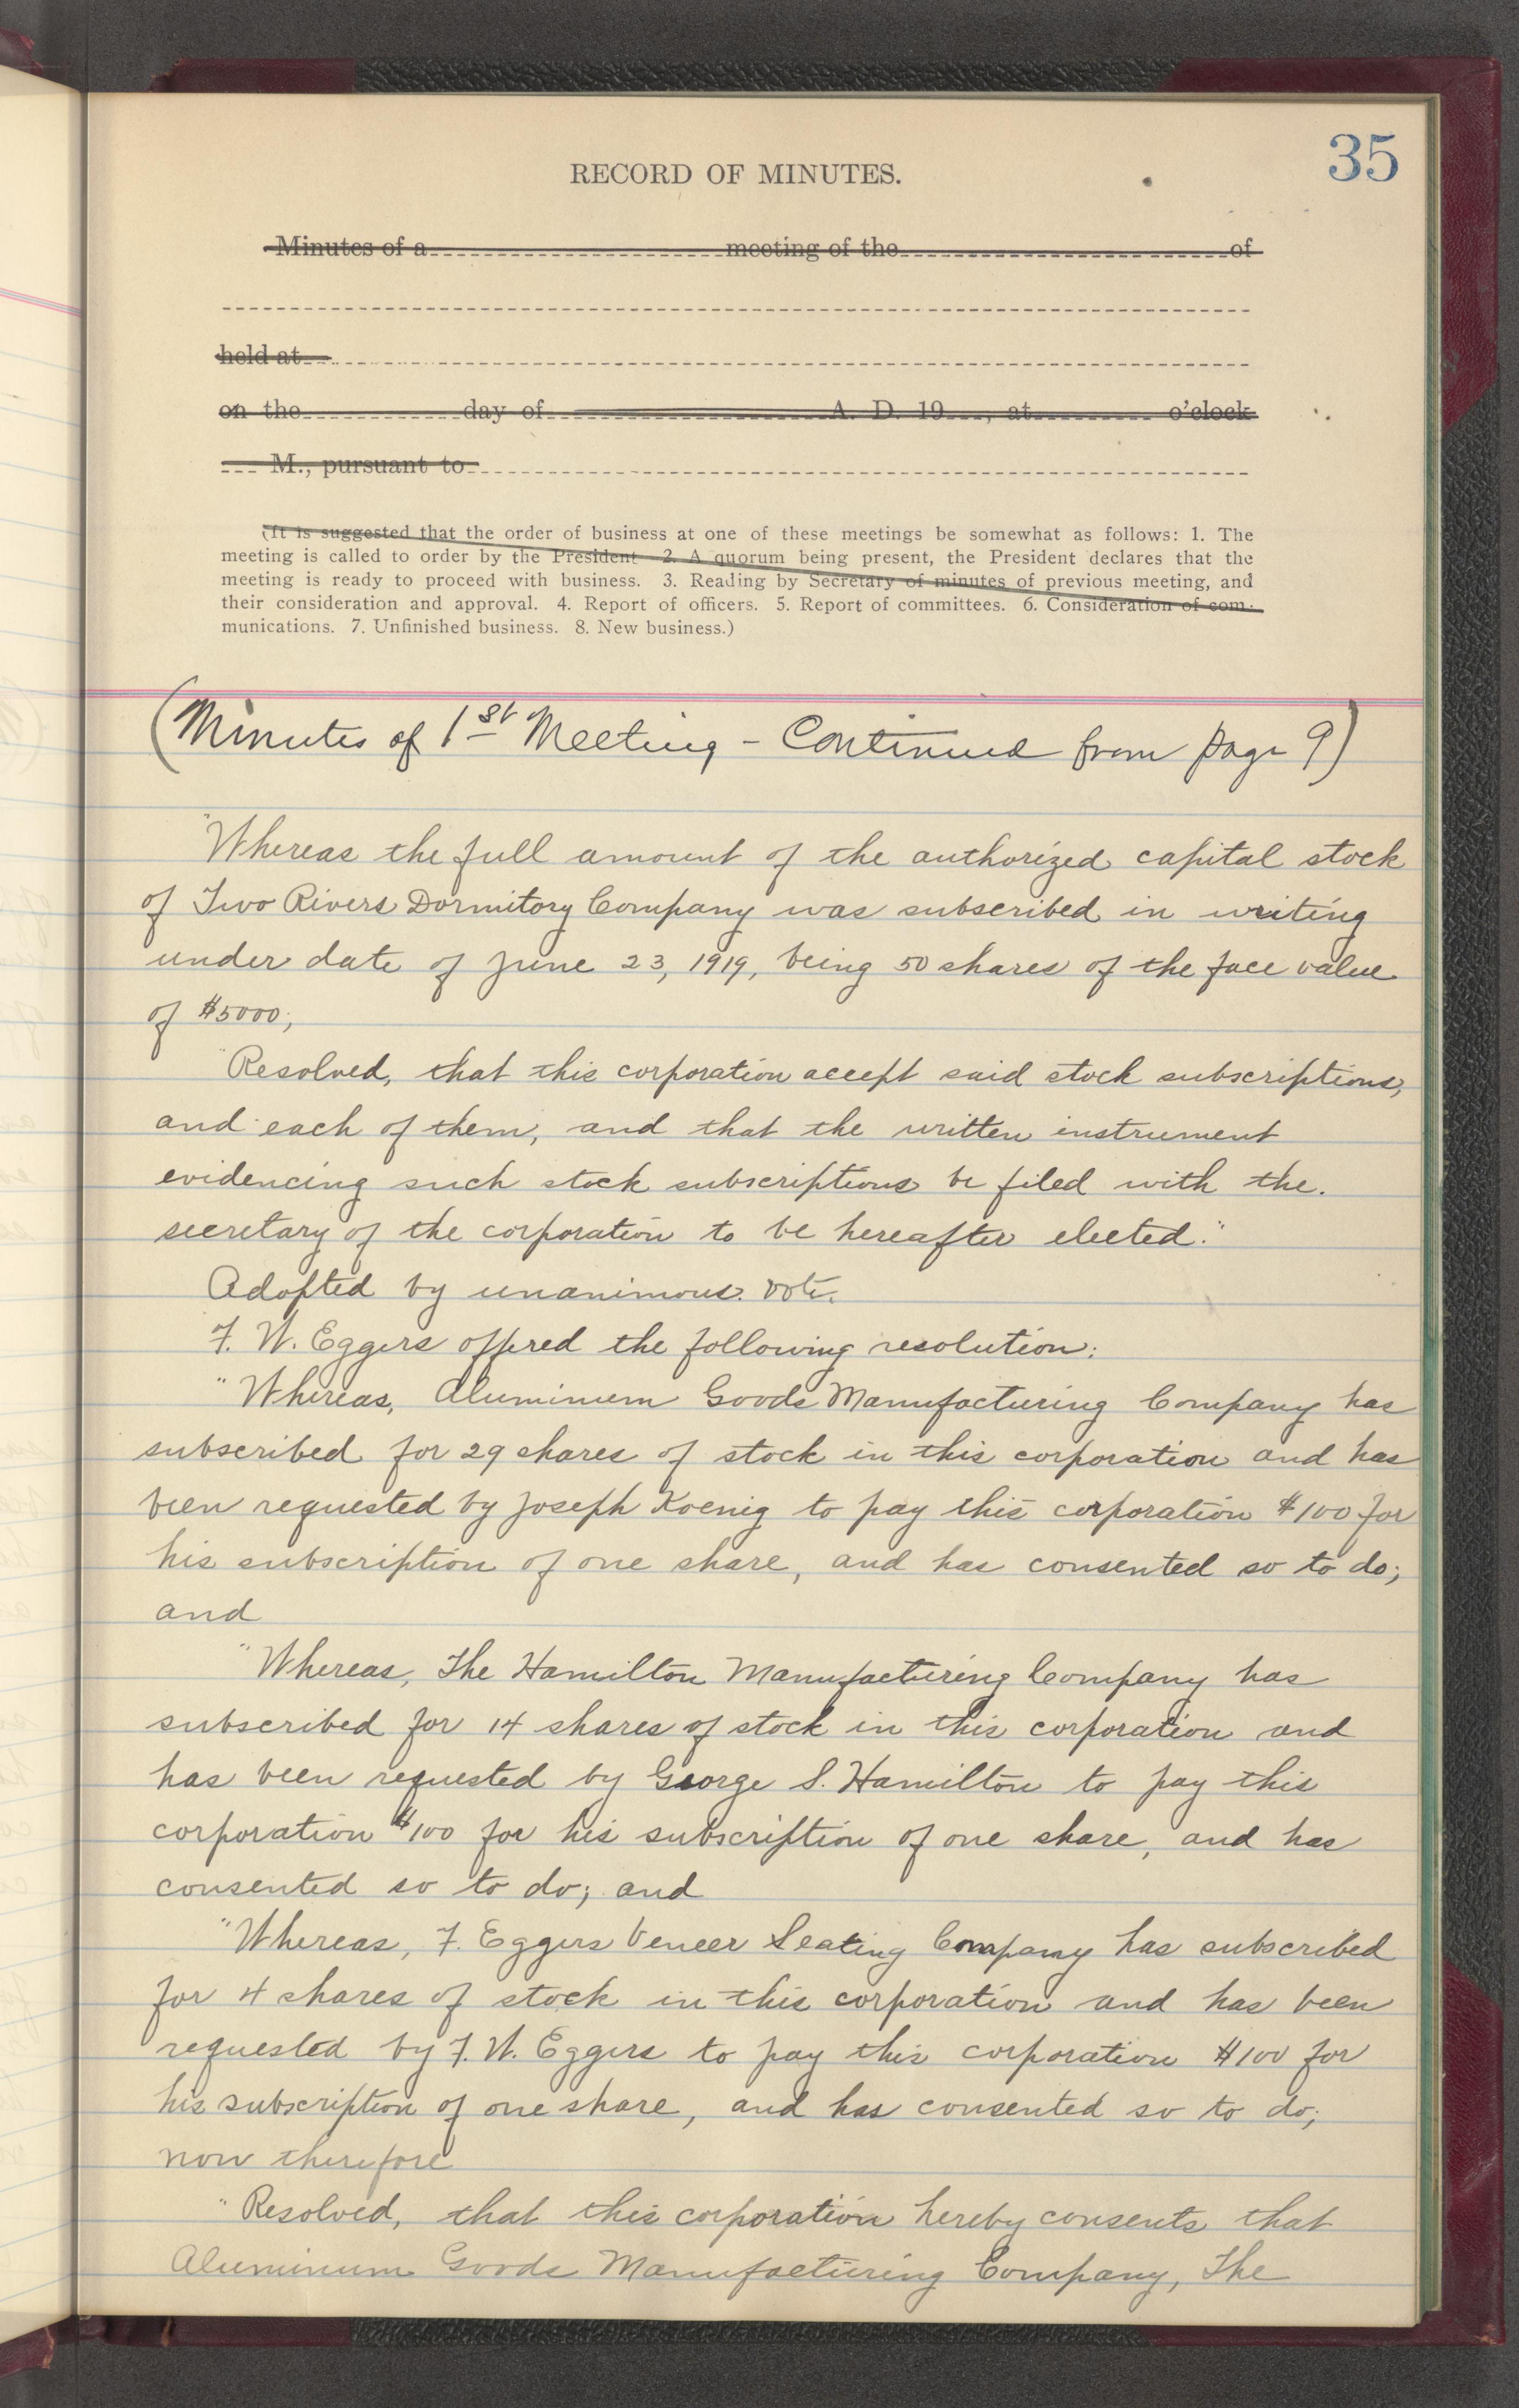 35
RECORD OF MINUTES.
Minutes of a meeting of the of
held at
on the day of A. D. 19 , at o'clock
M., pursuant to
(It is suggested that the order of business at one of these meetings be somewhat as follows: 1. The
meeting is called to order by the President 2. A quorum being present, the President declares that the
meeting is ready to proceed with business. 3. Reading by Secretary of minutes of previous meeting, and
their consideration and approval. 4. Report of officers. 5. Report of committees. 6. Consideration of com-
munications. 7. Unfinished business. 8. New business.)
(Minutes of 1st Meeting - Continued from page 9)
"Whereas the full amount of the authorized capital stock
of Two Rivers Dormitory Company was subscribed in writing
under date of June 23, 1919, being 50 shares of the face value
of $5000;
"Resolved, that this corporation accept said stock subscriptions,
and each of them, and that the written instrument
evidencing such stock subscriptions be filed with the.
secretary of the corporation to be hereafter elected."
Adopted by unanimous vote.
F. W. Eggers offered the following resolution:
"Whereas, Aluminum Goods Manufacturing Company has
subscribed for 29 shares of stock in this corporation and has
been requested by Joseph Koenig to pay this corporation $100 for
his subscription of one share, and has consented so to do;
and
"Whereas, The Hamilton Manufacturing Company has
subscribed for 14 shares of stock in this corporation and
has been requested by George S. Hamilton to pay this
corporation $100 for his subscription of one share, and has
consented so to do; and
"Whereas, F. Eggers Veneer Seating Company has subscribed
for 4 shares of stock in this corporation and has been
requested by F. W. Eggers to pay this corporation $100 for
his subscription of one share, and has consented so to do;
now therefore
"Resolved, that this corporation hereby consents that
Aluminum Goods Manufacturing Company, The